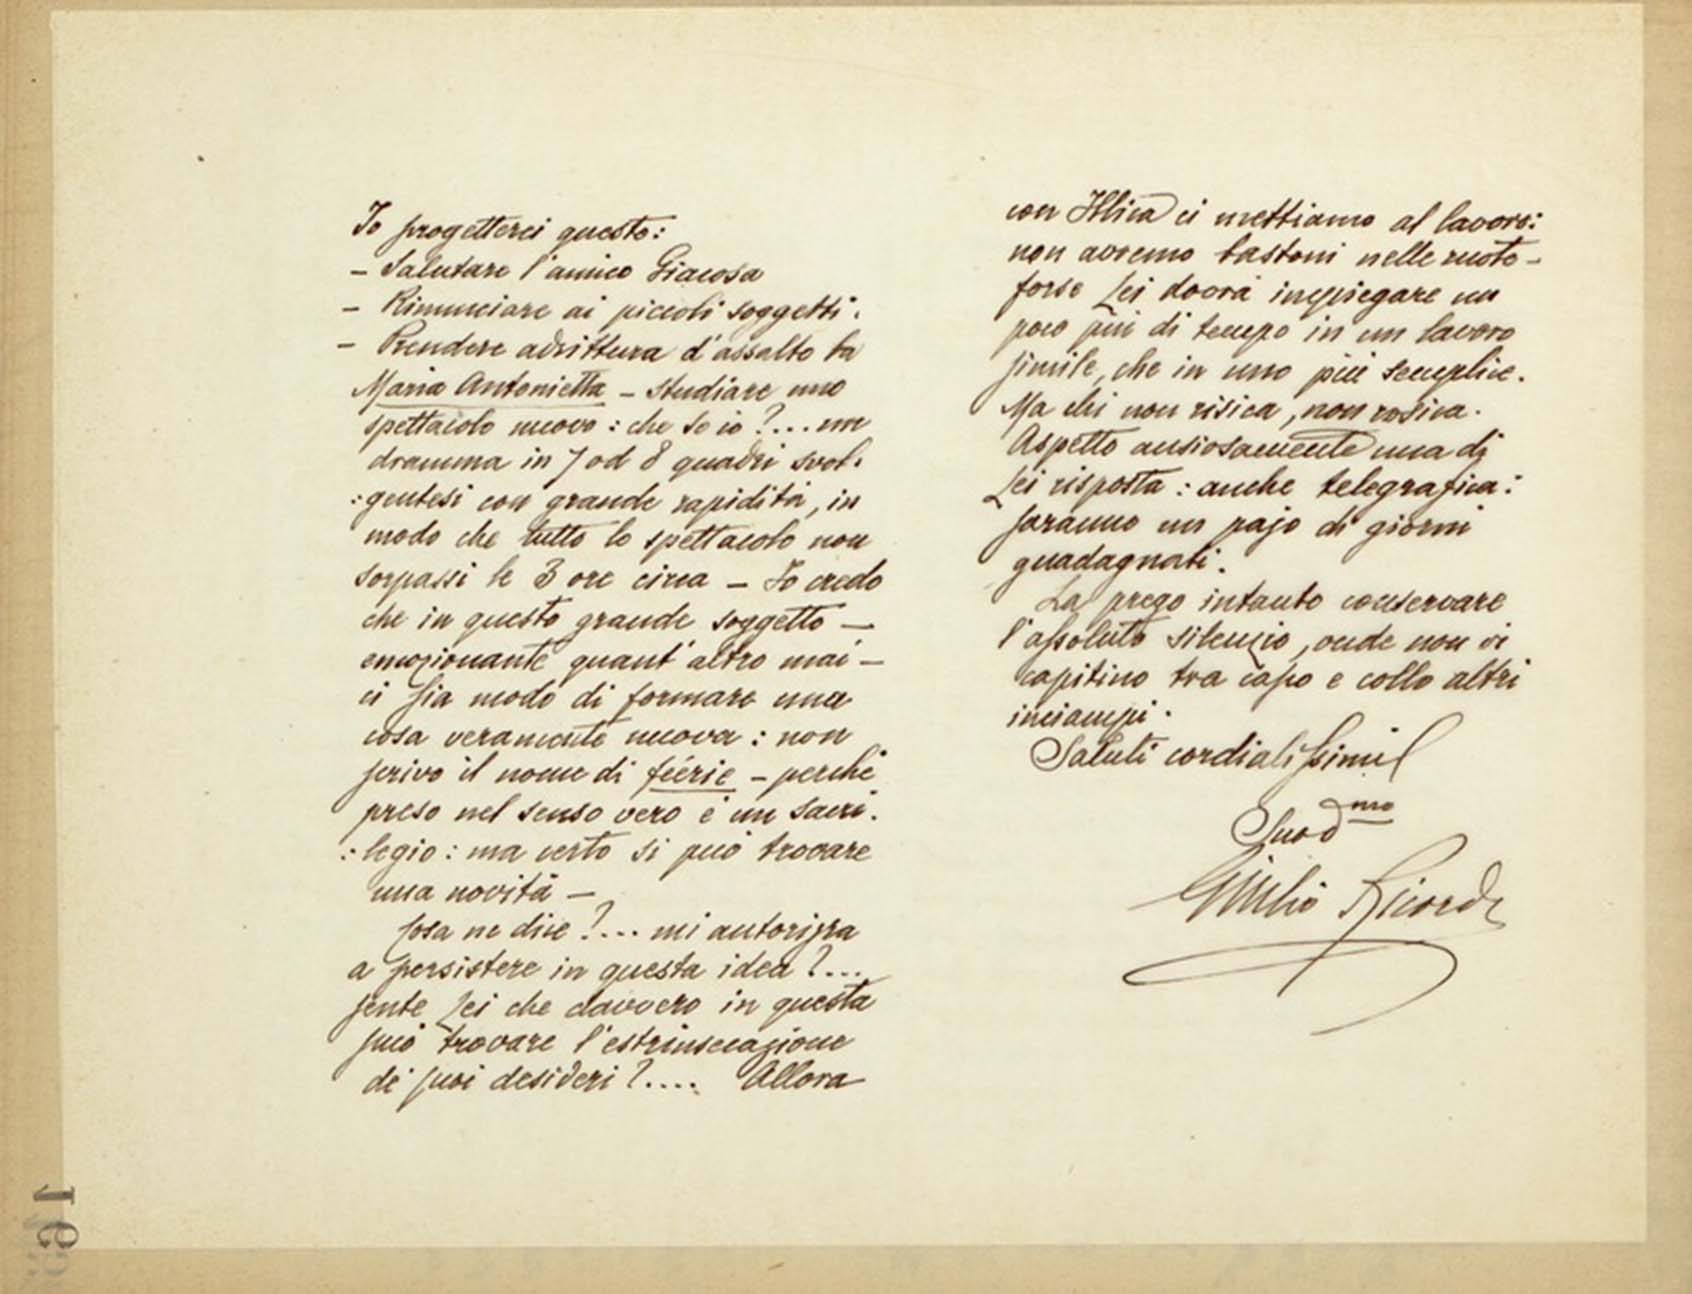 Io progetterei questo:
– Salutare l'amico Giacosa
– Rinunciare ai piccoli soggetti.
– Prendere adirittura d'assalto la
Maria Antonietta – studiare uno
spettacolo nuovo: che so io?... un
dramma in 7 od 8 quadri svol:
:gentesi con grande rapidità, in
modo che tutto lo spettacolo non
sorpassi le 3 ore circa – Io credo
che in questo grande soggetto –
emozionante quant'altro mai –
ci sia modo di formare una
cosa veramente nuova: non
scrivo il nome di féérie – perchè
preso nel senso vero è un sacri:
:legio: ma certo si può trovare
una novità –
Cosa ne dice?... mi autorizza
a persistere in questa idea?...
sente Lei che davvero in questa
può trovare l'estrinsecazione
de' suoi desideri?.... Allora
con Illica ci mettiamo al lavoro:
non avremo bastoni nelle ruote –
forse Lei dovrà impiegare un
poco più di tempo in un lavoro
simile, che in uno più semplice.
Ma chi non risica, non rosica.
Aspetto ansiosamente una di
Lei risposta: anche telegrafica:
saranno un pajo di giorni
guadagnati.
La prego intanto conservare
l'assoluto silenzio, onde non ci
capitino tra capo e collo altri
inciampi.
Saluti cordialissimi
Suo dmo
Giulio Ricordi
16